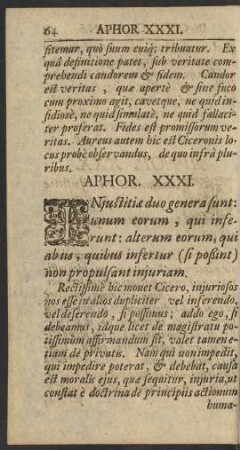 64 APHOR XXXI.
fitemur, quò suum cuiq; tribuatur. Ex
quâ definitione patet, sub veritate com-
prehendi candorem & fidem. Candor
est veritas, quæ apertè & sine fuco
cum proximo agit, cavetque, ne quid in-
sidiosè, ne quid simulatè, ne quid fallaci-
ter proferat. Fides est promissorum ve-
ritas. Aureus autem hic est Ciceronis lo-
cus probè observandus, de quo infrà plu-
ribus.
APHOR. XXXI.
INjustitiæ duo genera sunt:
unum eorum, qui infe-
runt: alterum eorum, qui
ab us, quibus infertur (si poßint)
non propulsant injuriam.
Rectissimè hic monet Cicero, injuriosos
nos esse in alios dupliciter vel inferendo,
vel deserendo, si possimus; addo ego, si
debeamus, idque licet de magistratu po-
tissimùm affirmandum sit, valet tamen e-
tiam de privatis. Nam qui non impedit,
qui impedire poterat, & debebat, causa
est moralis ejus, quæ sequitur, injuria, ut
constat è doctrina de principiis actionum
huma-